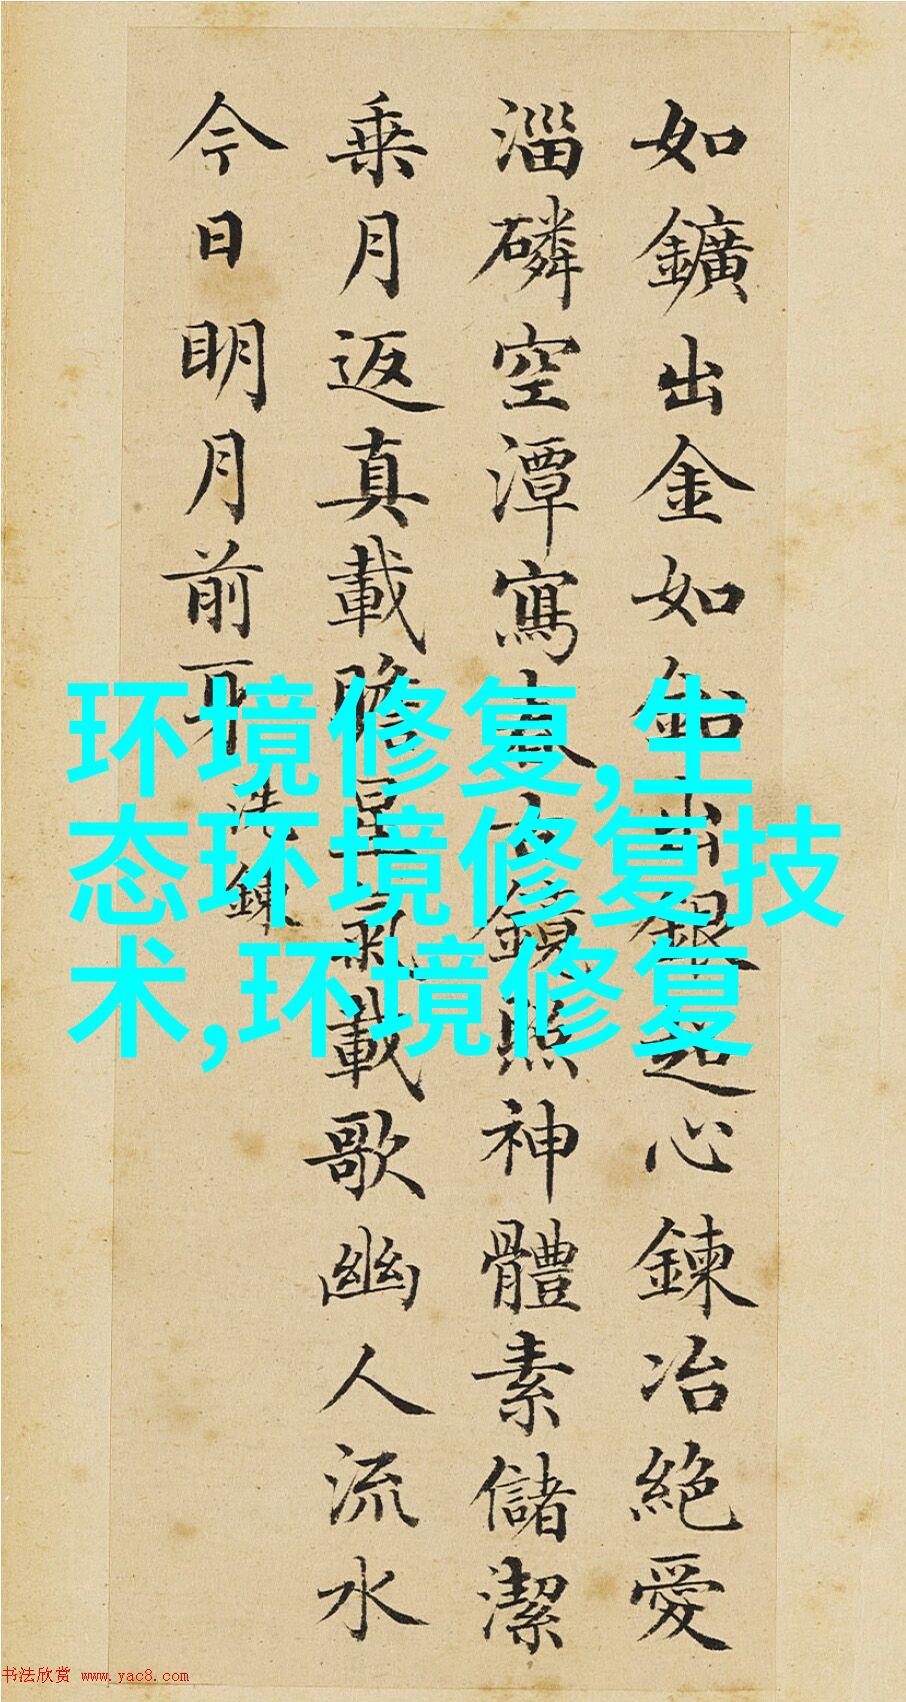 如鑛出金如鉛出銀超心鍊冶絕愛
淄磷空潭寫春古鏡照神體素儲潔
乗月返真載瞻星氣載歌幽人流水
今日明月前身
洗鍊
环境修复,生
态环境修复技
术,环境修复
书法欣赏 www.yac8.com